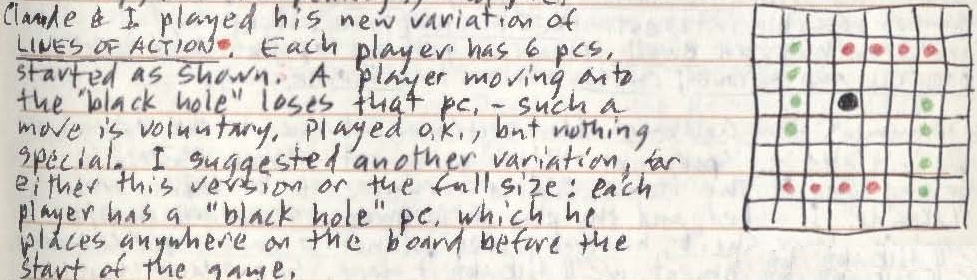 Claude & I played his new variation of
LINES OF ACTION. Each player has 6 pcs,
started as shown. A player moving onto
the "black hole" loses that pc, - such a
move is voluntary. Played o.k., but nothing
special. I suggested another variation, for
either this version or the full size: each
player has a "black hole" pc, which he
places anywhere on the board before the
start of the game.